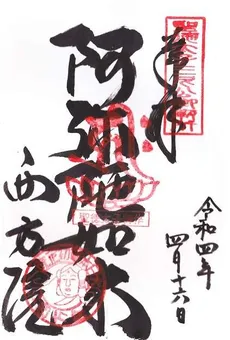 奉拝
阿彌陀如来
西方院
令和四年
四月十六日